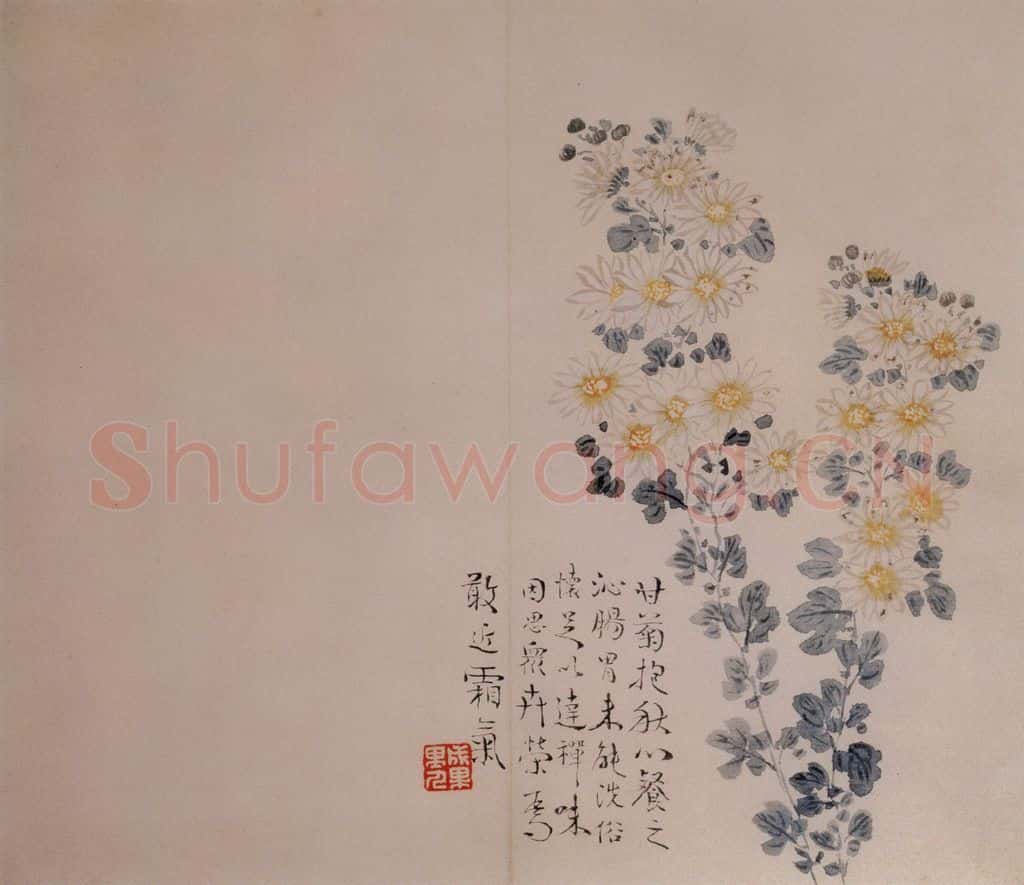 甘菊抱秋心餐之
沁腸胃未能洗俗
懷足以達禪味
因思衆卉榮焉
敢近霜氣
Shufawang.CN